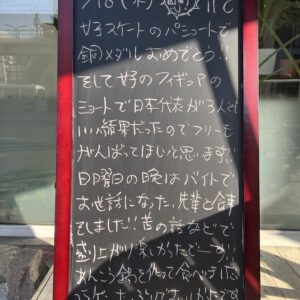 女子スケートのパシュートで
銅メダルおめでとう!!
そして女子のフィギュアの
ショートで日本代表が3人とも
いい結果だったのでフリーも
がんばってほしいと思います!!
日曜日の晩はバイトで
お世話になった先輩と食事を
しました!!昔の話などで
盛り上がり楽しかったでーす!!
あんこう鍋を作って食べました